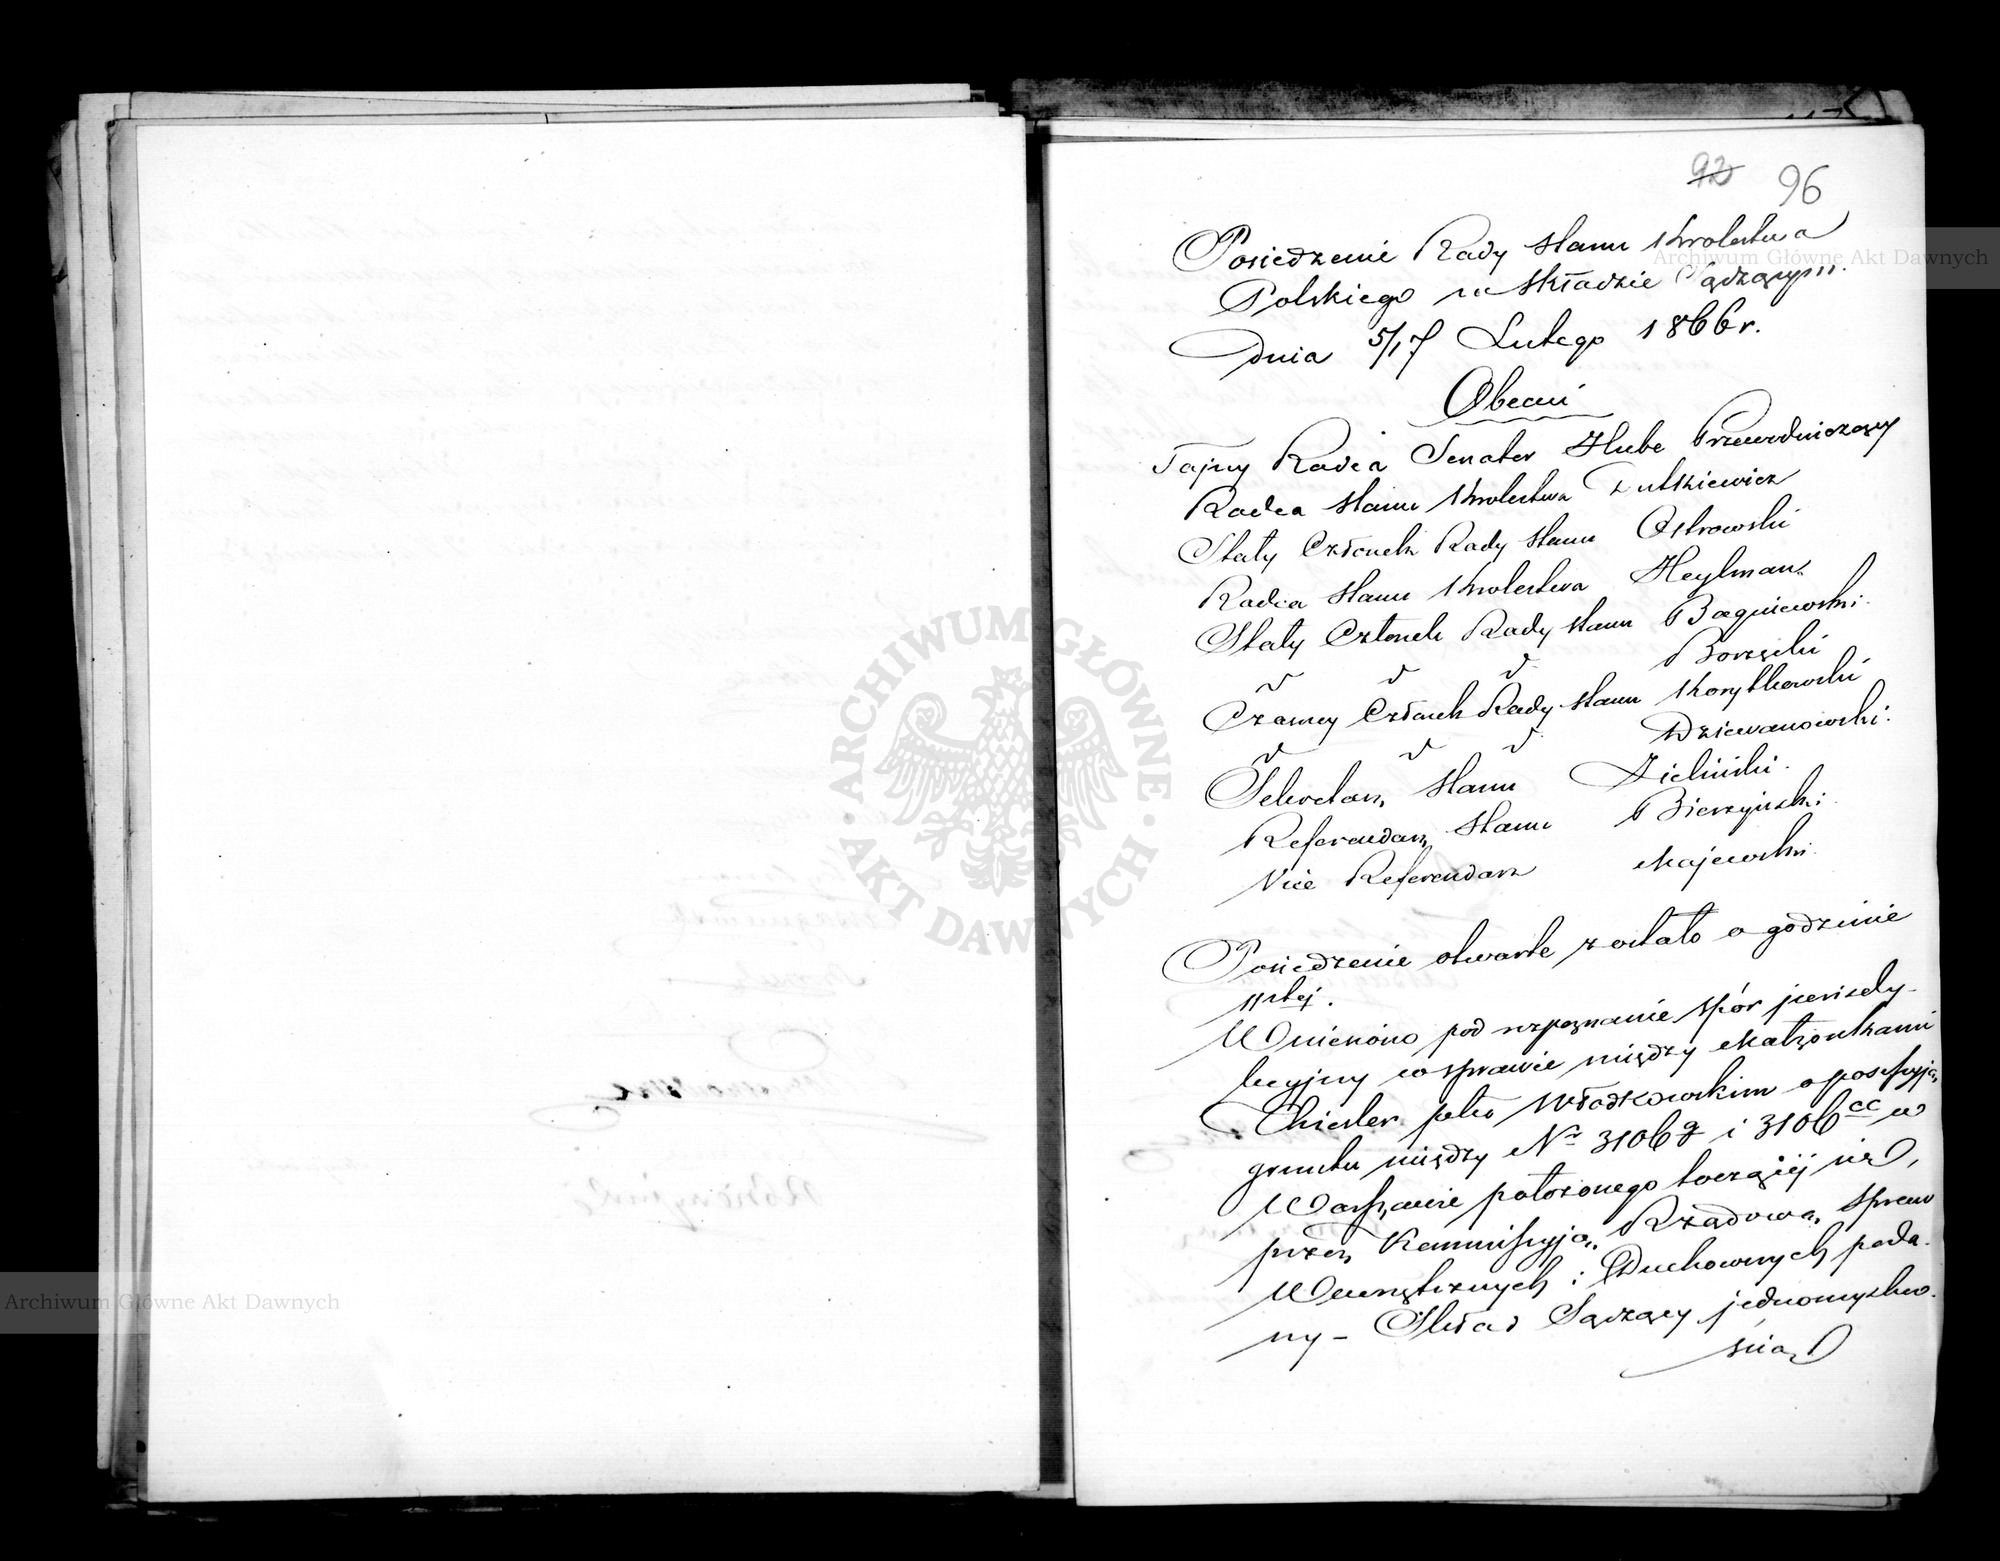 92 96
Posiedzenie Rady Stanu Królestwa
Polskiego w Składzie Sądzącym.
dnia 5/17 Lutego 1866 r.
Obecni
Tajny Radca Senator Hube Przewodniczący
Radca Stanu Królestwa Lutkiewicz
Stały Członek Rady Stanu Ostrowski
Radca Stanu Królestwa Heylman.
Stały Członek Rady Stanu Bagniewski.
Borzęcki
Czasowy Członek Rady Stanu Korytkowski
Dziewanowski.
Sekretarz Stanu Zieliński.
Referendarz Stanu Bierzyński.
Vice Referendarz Majewski.
Posiedzenie otwarte zostało o godzinie
11stej.
Wniesiono pod rozpoznanie spór jurisdy-
kcyjny w sprawie między Małżonkami
Thiesler polko Włodkowskim o possessyją
gruntu między Nr 3106 g i 3106 cc w
Warszawie położonego toczącej się,
przez Kommissyją Rządową Spraw
Wewnętrznych i Duchownych poda-
ny – Skład Sądzący jednomyślno-
ścią
ARCHIWUM GŁÓWNE AKT DAWNYCH
Archiwum Główne Akt Dawnych
Archiwum Główne Akt Dawnych